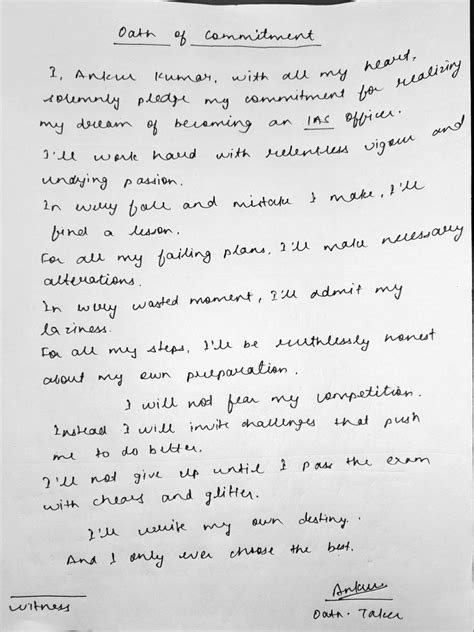 Oath of Commitment
I, Ankur Kumar, with all my heart,
solemnly pledge my commitment for realizing
my dream of becoming an IAS officer.
I'll work hard with relentless vigour and
undying passion.
In every fall and mistake I make, I'll
find a lesson.
For all my failing plans, I'll make necessary
alterations.
In every wasted moment, I'll admit my
laziness.
For all my steps, I'll be ruthlessly honest
about my own preparation.
I will not fear my competition.
Instead I will invite challenges that push
me to do better.
I'll not give up until I pass the exam
with cheers and glitter.
I'll write my own destiny.
And I only ever choose the best.
Ankur
witness
Oath-Taker